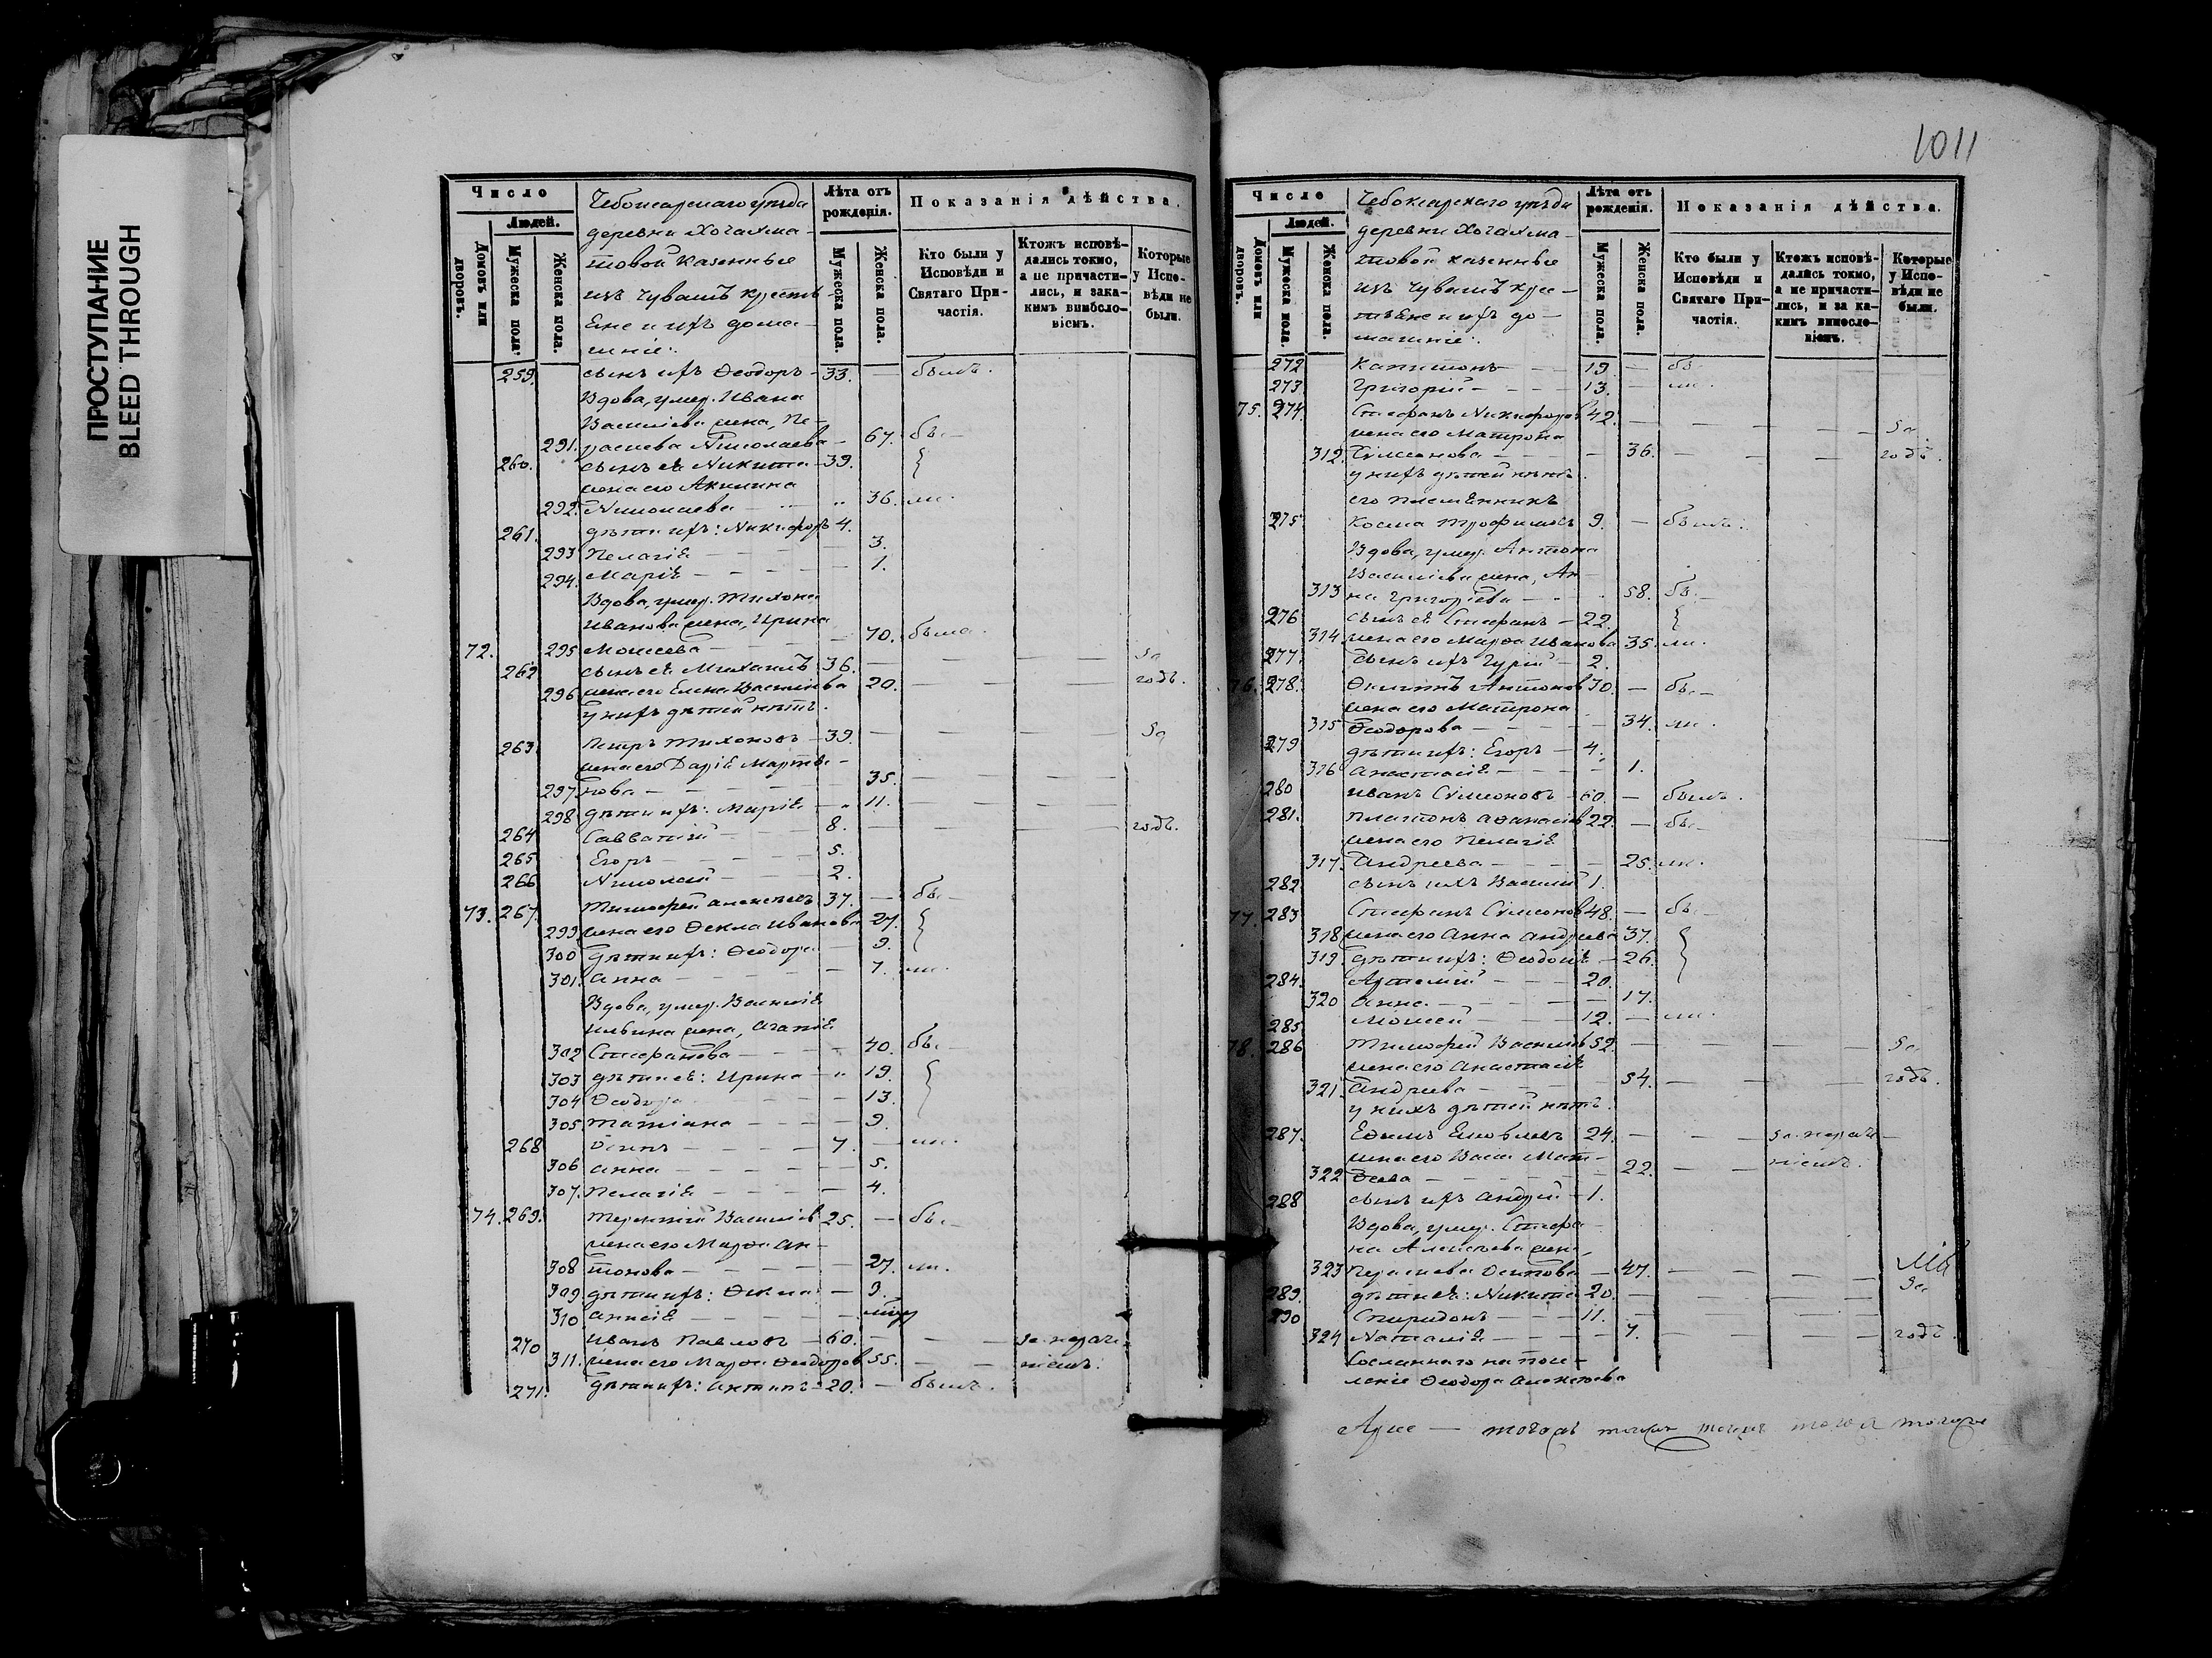 ПРОСТУПАНИЕ
BLEED THROUGH
Число
Людей.
Домовъ или дворовъ.
Мужеска пола.
Женска пола.
Чебоксарскаго уѣзда
деревни Хочахма-
товой казенные
изъ Чувашъ крестья
не и ихъ дома-
шніе:
Лѣта отъ рожденія.
Мужеска пола.
Женска пола.
Показанія дѣйства.
Кто были у Исповѣди и Святаго При-частія.
Ктожъ исповѣ-дались токмо, а не причасти-лись, и зака-кимъ винбсло-віемъ.
Которые у Испо-вѣди не были.
259. сынъ ихъ Ѳеодоръ - 33. — былъ.
Вдова, умер. Ивана
Василіева жена, Пе-
291. расиева Николаева - 67. бы-
260. сынъ ея Никита - 39. {
жена его Акилина
292. Николаева - 36. ли.
261. дѣти ихъ: Никифоръ 4.
293 Пелагія - 3.
294. Марія - 1.
Вдова, умер. Тихона
Иванова жена, Ирина
72. 295 Моисеева - 70. была.
262 сынъ ея Михаилъ 36. — за
296 жена его Елена Василіева 20. — годъ.
у нихъ дѣтей нѣтъ.
263. Петръ Тихоновъ - 39. — за
жена его Дарія Марты-
297. нова - 35.
298. дѣти ихъ: Марія - 11.
264 Савватій - 8. — годъ.
265 Егоръ - 5.
266 Николай - 2.
73. 267. Тимофей Алексѣевъ 37. — бы-
299 жена его Ѳекла Иванова 27. {
300 дѣти ихъ: Ѳеодора - 9.
301. Анна - 7. ли.
Вдова, умер. Василія
Ильина жена, Агапія
302 Стефанова - 40. бы-
303 дѣти ея: Ирина - 19. {
304 Ѳеодора - 13.
305 Татіана - 9.
268 Осипъ - 7. — ли.
306 Анна - 5.
307. Пелагія - 4.
74. 269. Терентій Василіев 25. — бы-
жена его Марѳа Ан-
308 тонова - 27. ли.
309 дѣти ихъ: Ѳекла - 9.
310
270 Иванъ Павловъ - 60. — за нераче-
311. жена его Марѳа Ѳеодоров 55. — ніемъ.
271. дѣти ихъ: Антипъ - 20. — былъ.
1011
Число
Людей.
Домовъ или дворовъ.
Мужеска пола.
Женска пола.
Чебоксарскаго уѣзда
деревни Хочахма-
товой казенные
изъ Чувашъ крес-
тьяне и ихъ до-
машніе:
Лѣта отъ рожденія.
Мужеска пола.
Женска пола.
Показанія дѣйства.
Кто были у Исповѣди и Святаго При-частія.
Ктожъ исповѣ-дались токмо, а не причасти-лись, и за ка-кимъ виносло-віемъ.
Которые у Испо-вѣди не были.
272 Капитонъ - 19. — бы-
273. Григорій - 13. — ли.
75. 274. Стефанъ Никифоров 42. — за
жена его Матрона
312. Сѷмеонова - 36. — годъ.
у нихъ дѣтей нѣтъ.
его племянникъ
275 Косма Трофимовъ 9. — былъ.
Вдова, умер. Антона
Василіева жена, Ан-
313 на Григоріева - 58. бы-
276 сынъ ея Стефанъ - 22. {
314. жена его Марѳа Иванова 35. ли.
277. сынъ ихъ Гурій - 2.
76. 278. Антонов 30. — бы-
жена его Матрона
315 Ѳеодорова - 34. ли.
279 дѣти ихъ: Егоръ - 4.
316 Анастасія - 1.
280 Иванъ Сѷмеоновъ - 60. — былъ.
281. Платонъ Аѳанасіев 22. — бы-
жена его Пелагія
317. Андреева - 25. ли.
282 сынъ ихъ Василій 1.
77. 283 Стефанъ Сѷмеонов 48. — бы-
318 жена его Анна Андреева 37. {
319. дѣти ихъ: Ѳеодосія - 26.
284. Артемій - 20.
320 Анна - 17.
285 Моисей - 12. — ли.
78. 286 Тимофей Василіев 52. — за
жена его Анастасія
321. Андреева - 54. — годъ.
у нихъ дѣтей нѣтъ.
287. 24. — за нерач-
жена его Васса Мат-
322 ѳеева - 22. — ніемъ.
288 сынъ ихъ Андрей - 1.
Вдова, умер. Стефа-
на Алексѣева жена,
323 Параскева Осипова - 47.
289. дѣти ея: Никита 20. — за
290 Спиридонъ - 11.
324 Наталія - 7. — годъ.
Сосланнаго на посе-
леніе Ѳеодора Алексѣева